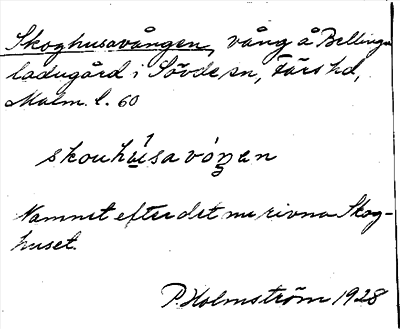 Skoghusavången, vång å Bellinga
ladugård i Sövde sn, Färs hd,
Malm. l. 60
skouhu̱sa vóŋen
Namnet efter det nu rivna Skog-
huset.
P. Holmström 1928